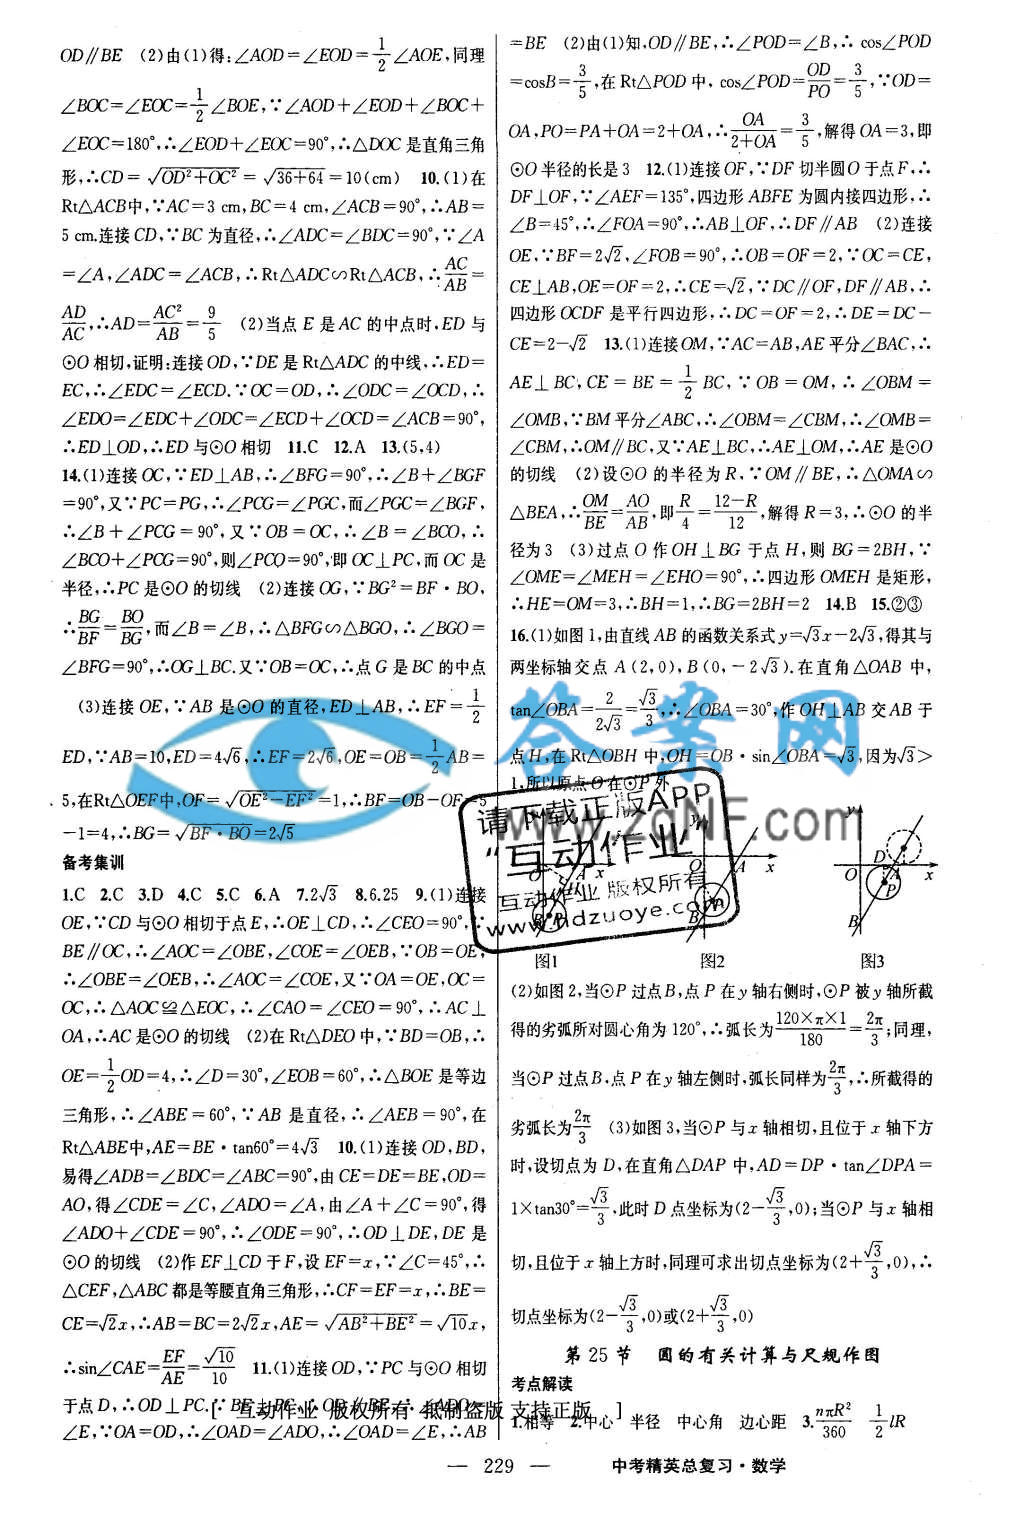 OD∥BE (2)由(1)得:∠AOD=∠EOD=1/2∠AOE,同理
∠BOC=∠EOC=1/2∠BOE,∵∠AOD+∠EOD+∠BOC+
∠EOC=180°,∴∠EOD+∠EOC=90°,∴△DOC是直角三角
形,∴CD=√(OD²+OC²)=√(36+64)=10(cm) 10.(1)在
Rt△ACB中,∵AC=3 cm,BC=4 cm,∠ACB=90°,∴AB=
5 cm.连接CD,∵BC为直径,∴∠ADC=∠BDC=90°,∵∠A
=∠A,∠ADC=∠ACB,∴Rt△ADC∽Rt△ACB,∴AC/AB=
AD/AC,∴AD=AC²/AB=9/5 (2)当点E是AC的中点时,ED与
⊙O相切,证明:连接OD,∵DE是Rt△ADC的中线,∴ED=
EC,∴∠EDC=∠ECD.∵OC=OD,∴∠ODC=∠OCD,∴
∠EDO=∠EDC+∠ODC=∠ECD+∠OCD=∠ACB=90°,
∴ED⊥OD,∴ED与⊙O相切 11.C 12.A 13.(5,4)
14.(1)连接OC,∵ED⊥AB,∴∠BFG=90°,∴∠B+∠BGF
=90°,又∵PC=PG,∴∠PCG=∠PGC,而∠PGC=∠BGF,
∴∠B+∠PCG=90°,又∵OB=OC,∴∠B=∠BCO,∴
∠BCO+∠PCG=90°,则∠PCO=90°,即OC⊥PC,而OC是
半径,∴PC是⊙O的切线 (2)连接OG,∵BG²=BF·BO,
∴BG/BF=BO/BG,而∠B=∠B,∴△BFG∽△BGO,∴∠BGO=
∠BFG=90°,∴OG⊥BC.又∵OB=OC,∴点G是BC的中点
(3)连接OE,∵AB是⊙O的直径,ED⊥AB,∴EF=1/2
ED,∵AB=10,ED=4√6,∴EF=2√6,OE=OB=1/2AB=
5,在Rt△OEF中,OF=√(OE²-EF²)=1,∴BF=OB-OF=5
-1=4,∴BG=√(BF·BO)=2√5
备考集训
1.C 2.C 3.D 4.C 5.C 6.A 7.2√3 8.6.25 9.(1)连接
OE,∵CD与⊙O相切于点E,∴OE⊥CD,∴∠CEO=90°,∵
BE∥OC,∴∠AOC=∠OBE,∠COE=∠OEB,∵OB=OE,
∴∠OBE=∠OEB,∴∠AOC=∠COE,又∵OA=OE,OC=
OC,∴△AOC≌△EOC,∴∠CAO=∠CEO=90°,∴AC⊥
OA,∴AC是⊙O的切线 (2)在Rt△DEO中,∵BD=OB,∴
OE=1/2OD=4,∴∠D=30°,∠EOB=60°,∴△BOE是等边
三角形,∴∠ABE=60°,∵AB是直径,∴∠AEB=90°,在
Rt△ABE中,AE=BE·tan60°=4√3 10.(1)连接OD,BD,
易得∠ADB=∠BDC=∠ABC=90°,由CE=DE=BE,OD=
AO,得∠CDE=∠C,∠ADO=∠A,由∠A+∠C=90°,得
∠ADO+∠CDE=90°,∴∠ODE=90°,∴OD⊥DE,DE是
⊙O的切线 (2)作EF⊥CD于F,设EF=x,∵∠C=45°,∴
△CEF,△ABC都是等腰直角三角形,∴CF=EF=x,∴BE=
CE=√2x,∴AB=BC=2√2x,AE=√(AB²+BE²)=√10x,
∴sin∠CAE=EF/AE=√10/10 11.(1)连接OD,∵PC与⊙O相切
于点D,∴OD⊥PC.∵BE⊥PC,∴OD∥BE,∴∠ADO=
∠E,∵OA=OD,∴∠OAD=∠ADO,∴∠OAD=∠E,∴AB
=BE (2)由(1)知,OD∥BE,∴∠POD=∠B,∴cos∠POD
=cosB=3/5,在Rt△POD中,cos∠POD=OD/PO=3/5,∵OD=
OA,PO=PA+OA=2+OA,∴OA/(2+OA)=3/5,解得OA=3,即
⊙O半径的长是3 12.(1)连接OF,∵DF切半圆O于点F,∴
DF⊥OF,∵∠AEF=135°,四边形ABFE为圆内接四边形,∴
∠B=45°,∴∠FOA=90°,∴AB⊥OF,∴DF∥AB (2)连接
OE,∵BF=2√2,∠FOB=90°,∴OB=OF=2,∵OC=CE,
CE⊥AB,OE=OF=2,∴CE=√2,∵DC∥OF,DF∥AB,∴
四边形OCDF是平行四边形,∴DC=OF=2,∴DE=DC-
CE=2-√2 13.(1)连接OM,∵AC=AB,AE平分∠BAC,∴
AE⊥BC,CE=BE=1/2BC,∵OB=OM,∴∠OBM=
∠OMB,∵BM平分∠ABC,∴∠OBM=∠CBM,∴∠OMB=
∠CBM,∴OM∥BC,又∵AE⊥BC,∴AE⊥OM,∴AE是⊙O
的切线 (2)设⊙O的半径为R,∵OM∥BE,∴△OMA∽
△BEA,∴OM/BE=AO/AB,即R/4=(12-R)/12,解得R=3,∴⊙O的半
径为3 (3)过点O作OH⊥BG于点H,则BG=2BH,∵
∠OME=∠MEH=∠EHO=90°,∴四边形OMEH是矩形,
∴HE=OM=3,∴BH=1,∴BG=2BH=2 14.B 15.②③
16.(1)如图1,由直线AB的函数关系式y=√3x-2√3,得其与
两坐标轴交点A(2,0),B(0,-2√3).在直角△OAB中,
tan∠OBA=2/(2√3)=√3/3,∴∠OBA=30°,作OH⊥AB交AB于
点H,在Rt△OBH中,OH=OB·sin∠OBA=√3,因为√3>
1,所以原点O在⊙P外
图1 图2 图3
(2)如图2,当⊙P过点B,点P在y轴右侧时,⊙P被y轴所截
得的劣弧所对圆心角为120°,∴弧长为(120×π×1)/180=2π/3;同理,
当⊙P过点B,点P在y轴左侧时,弧长同样为2π/3,∴所截得的
劣弧长为2π/3 (3)如图3,当⊙P与x轴相切,且位于x轴下方
时,设切点为D,在直角△DAP中,AD=DP·tan∠DPA=
1×tan30°=√3/3,此时D点坐标为(2-√3/3,0);当⊙P与x轴相
切,且位于x轴上方时,同理可求出切点坐标为(2+√3/3,0),∴
切点坐标为(2-√3/3,0)或(2+√3/3,0)
第25节 圆的有关计算与尺规作图
考点解读
1.相等 2.中心 半径 中心角 边心距 3.nπR²/360 1/2lR
— 229 — 中考精英总复习·数学
答案网
www.zqNF.com
请下载正版APP
“互动作业”
互动作业 版权所有
www.hdzuoye.com
[ 互动作业 版权所有 抵制盗版 支持正版 ]